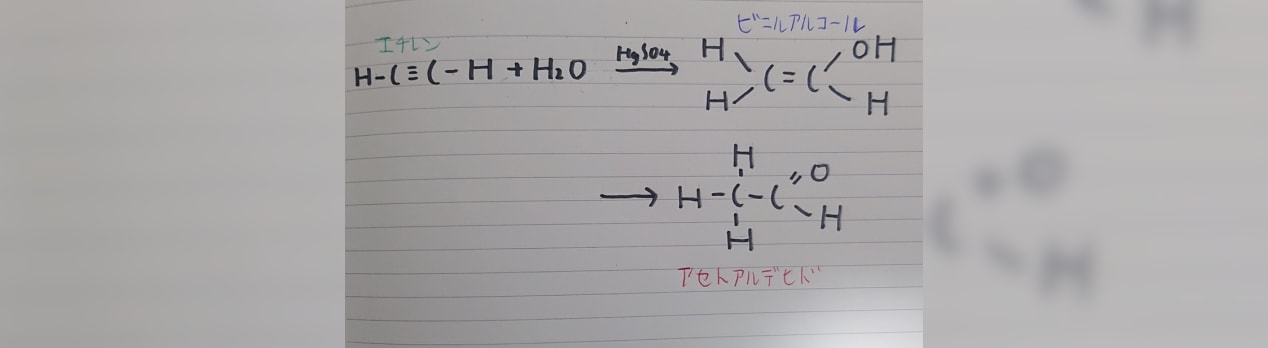 エチレン
H-C≡C-H + H₂O
HgSO₄
ビニルアルコール
H OH
C=C
H H
H
O
H-C-C
H
H
アセトアルデヒド